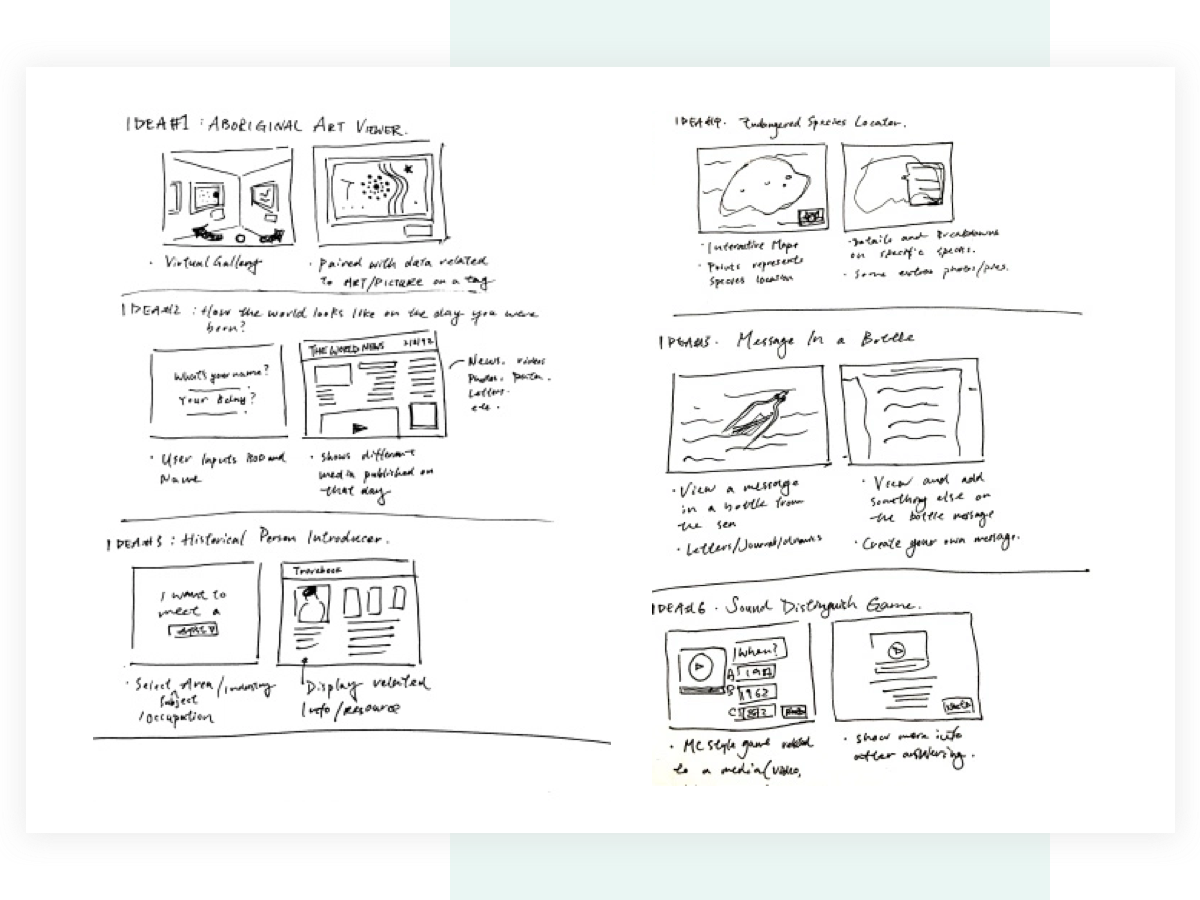 IDEA#1 : ABORIGINAL ART VIEWER.
· Virtual Gallery
· Paired with data related
to ART/PICTURE on a tag
IDEA#2 : How the world looks like on the day you were
born?
What's your name?
Your Bday?
· User Inputs BOD and
Name
THE WORLD NEWS
News, videos
Photos, Data.
Letters.
etc.
· Shows different
media published on
that day
IDEA#3 : Historical Person Introducer.
I want to
meet a
· Select Area/Industry
Subject
/Occupation
Display related
Info/Resource
IDEA#4. Endangered Species Locator.
· Interactive Map
· Points represents
Species location
· Details and Breakdowns
on specific species.
· Some extra photos/
IDEA#5. Message In a Bottle
· View a message
in a bottle from
the sea
· Letters/Journal/
· View and add
something else on
the bottle message
· Create your own message.
IDEA#6. Sound Distinguish Game.
When?
A
B 1962
C
· MC style game related
to a media (video,
Next
· Show more info
after answering.